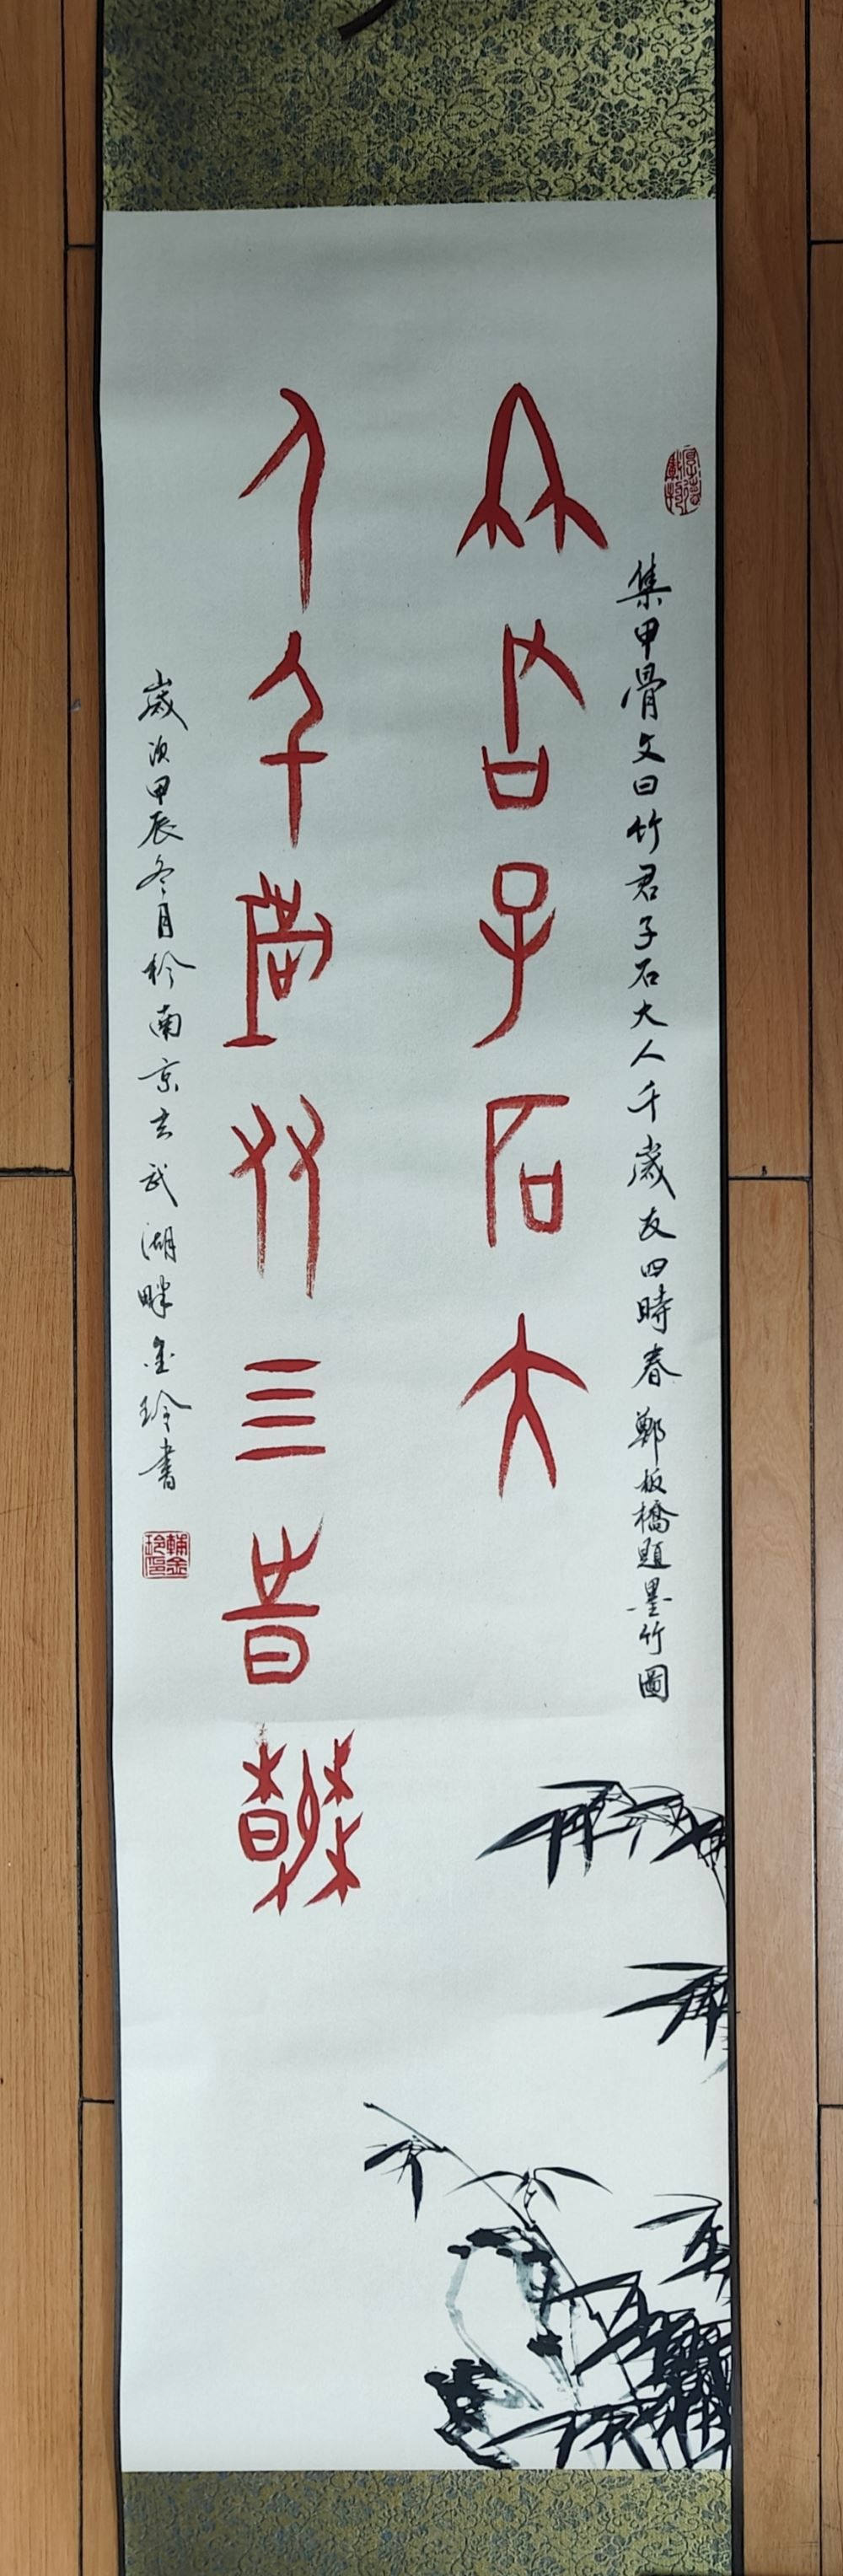 集甲骨文曰竹君子石大人千歲友四時春 鄭板橋題墨竹圖
竹君子石大
人千歲友四時春
歲次甲辰冬月於南京玄武湖畔金玲書